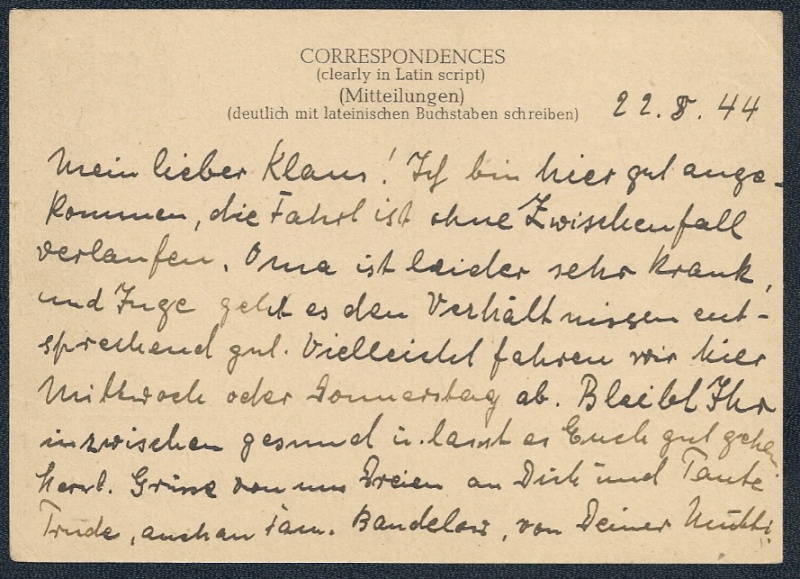 CORRESPONDENCES
(clearly in Latin script)
(Mitteilungen)
(deutlich mit lateinischen Buchstaben schreiben)
22. 8. 44
Mein lieber Klaus! Ich bin hier gut ange-
kommen, die Fahrt ist ohne Zwischenfall
verlaufen. Oma ist leider sehr krank,
und Inge geht es den Verhältnissen ent-
sprechend gut. Vielleicht fahren wir hier
Mittwoch oder Donnerstag ab. Bleibt Ihr
inzwischen gesund u. lasst es Euch gut gehen
Herzl. Grüsse von uns Dreien an Dich und Tante
Trude, auch an Fam. Bandelow, von Deiner Mutti.